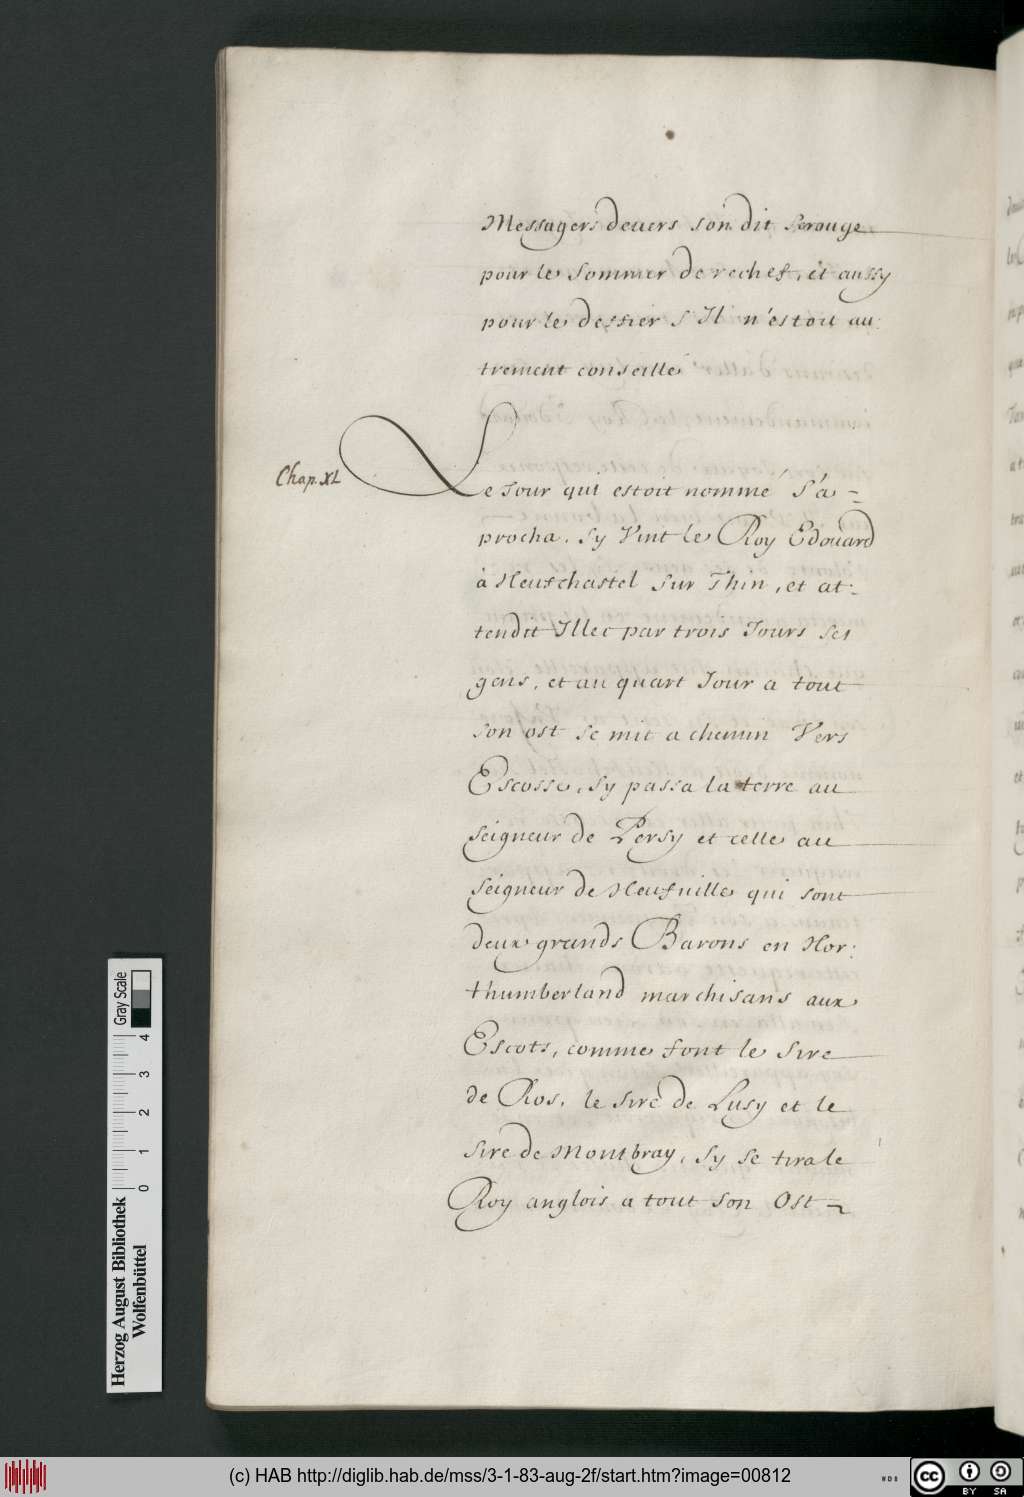 Messagers deuers son dit Serouge
pour le sommer de rechef, et aussy
pour le deffier s'Il n'estoit au:
trement conseillé
Chap. XL
Le Jour qui estoit nommé s'a-
procha, sy Vint le Roy Edouard
à Neufchastel sur Thin, et at:
tendit Illec par trois Jours ses
gens, et au quart Jour a tout
son ost se mit a chemin Vers
Escosse, sy passa la terre au
seigneur de Persy et celle au
seigneur de Neufuille qui sont
deux grands Barons en Nor:
thumberland marchisans aux
Escots, comme font le sire
de Ros, le sire de Lusy et le
sire de Montbray, sy se tira le
Roy anglois a tout son Ost
Gray Scale
0 1 2 3 4
Herzog August Bibliothek
Wolfenbüttel
(c) HAB http://diglib.hab.de/mss/3-1-83-aug-2f/start.htm?image=00812
WDB
cc
BY SA